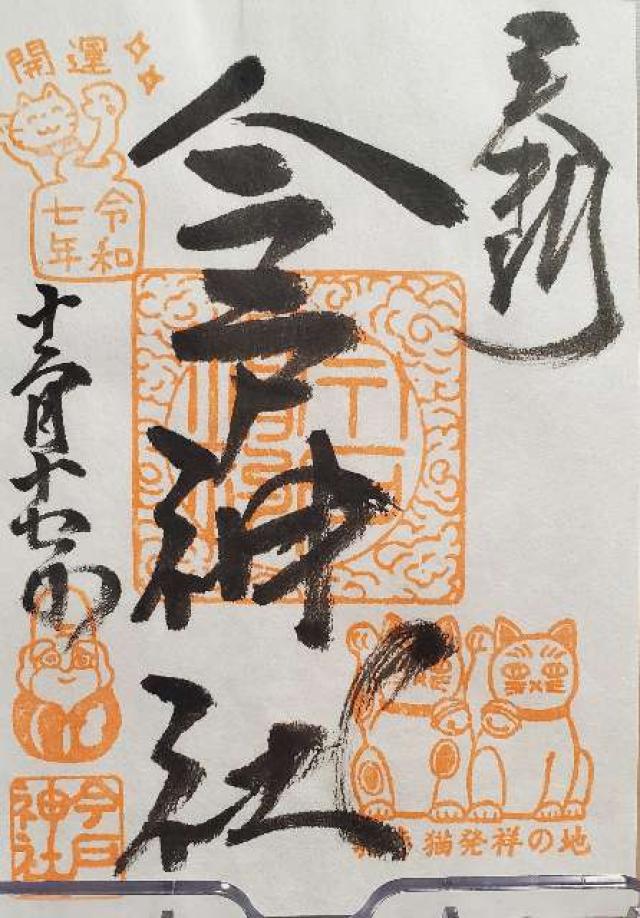 奉拝
今戸神社
開運
令和
七年
十二月十七日
今戸
神社
猫発祥の地